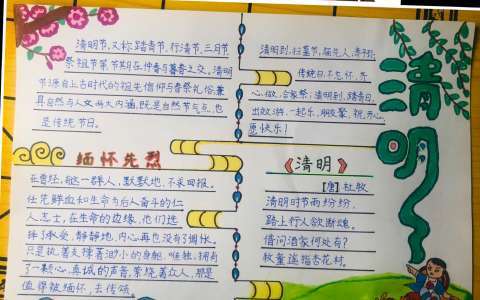 清明节，又称踏青节、行清节、三月节
祭祖节等，节期在仲春与暮春之交。清明
节源自上古时代的祖先信仰与春祭礼俗，兼
具自然与人文两大内涵，既是自然节气点，也
是传统节日。
清明到，扫墓节，
传统日，不忘怀，
心做，合家祭，清明到，踏青日，
出效游，一起乐，朋友聚，祝开心，
愿快乐！
清明
缅怀先烈
在曾经，有这一群人，默默地，不求回报，
任凭鲜血和生命为后人奋斗的仁
人志士，在生命的边缘，他们选
择了承受，静静地，内心再也没有了惆怅。
只是执著支撑着渺小的身躯，唯独，拥有
了一颗心，真诚的声音，萦绕着众人，那是
值得被缅怀，去传颂。
《清明》
【唐】杜牧
清明时节雨纷纷，
路上行人欲断魂。
借问酒家何处有？
牧童遥指杏花村。